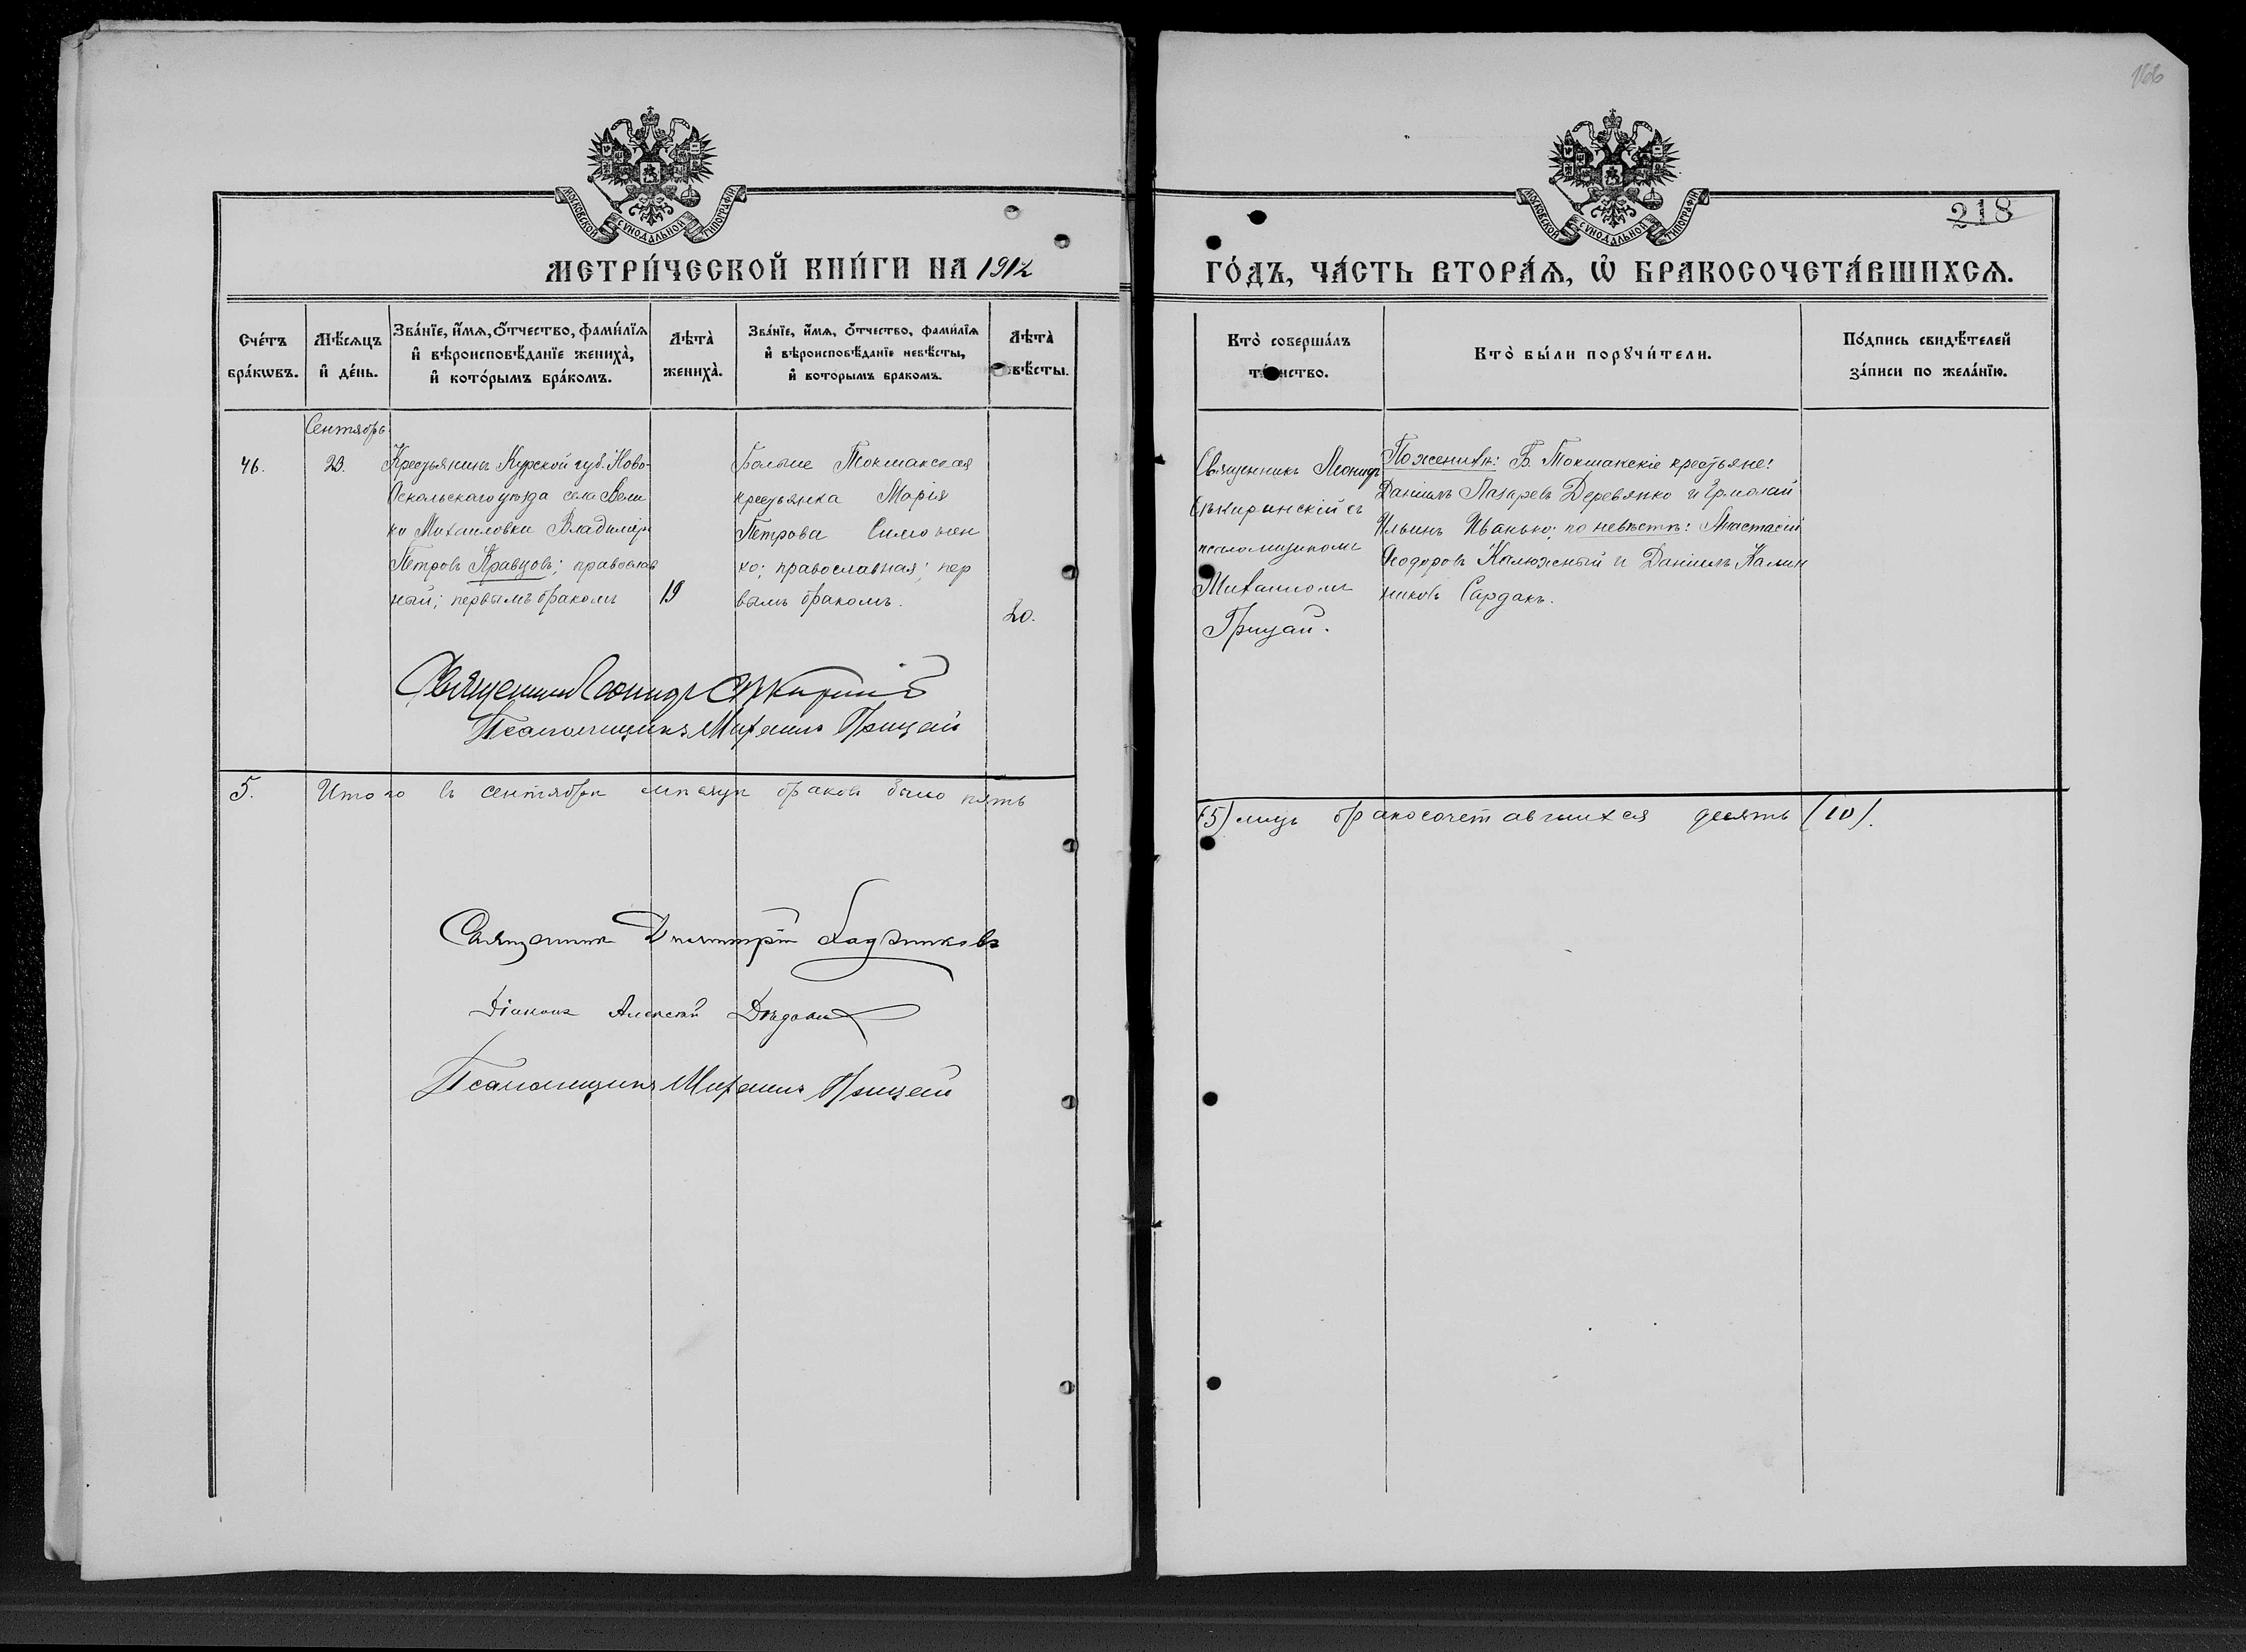 166
МОСКОВСКОЙ СѴНОДАЛЬНОЙ ТИПОГРАФІИ
МОСКОВСКОЙ СѴНОДАЛЬНОЙ ТИПОГРАФІИ
218
МЕТРИ́ЧЕСКОЙ КНИ́ГИ НА 1912
ГО́ДЪ, ЧА́СТЬ ВТОРА́Ѧ, Ѽ БРАКОСОЧЕТА́ВШИХСѦ.
Сче́тъ бра́кѡвъ.
Мѣ́сѧцъ и҆ де́нь.
Зва́нїе, и҆́мѧ, ѻ҆́тчество, фамѝлїѧ
и҆ вѣроисповѣ́данїе женихà,
и҆ кото́рымъ бра́комъ.
Лѣтà женихà.
Зва́нїе, и҆́мѧ, ѻ҆́тчество, фамѝлїѧ
и҆ вѣроисповѣ́данїе невѣ́сты,
и҆ которымъ бракомъ.
Лѣтà вѣ́сты.
Кто̀ соверша́лъ
та́инство.
Кто̀ бы́ли порꙋчи́тели.
По́дпись свидѣ́телей
за́писи по жела́нїю.
Сентябрь
46.
23.
Крестьянинъ Курской губ. Ново-
Оскольскаго уѣзда села Вели
ко Михаиловки Владиміръ
Петровъ Кравцовъ; православ
ный; первымъ бракомъ
19
Больше Токмакская
крестьянка Марія
Петрова Симонен
ко; православная; пер
вымъ бракомъ.
20.
Священникъ Леонидъ
Сѣкиринскій съ
псаломщикомъ
Михаиломъ
Грицай.
По женихѣ: Б. Токмакскіе крестьяне:
Даніилъ Лазаревъ Деревянко и Ермолай
Ильинъ Иванько; по невѣстѣ: Анастасій
Ѳеодоровъ Калюжный и Даніилъ Калин
никовъ Сардакъ.
Священникъ Леонидъ Сѣкиринскій
Псаломщикъ Михаилъ Грицай
5.
Итого въ сентябрѣ мѣсяцѣ браковъ было пять
(5) лицъ бракосочетавшихся десять (10).
Священникъ Димитрій
Діаконъ Алексѣй
Псаломщикъ Михаилъ Грицай